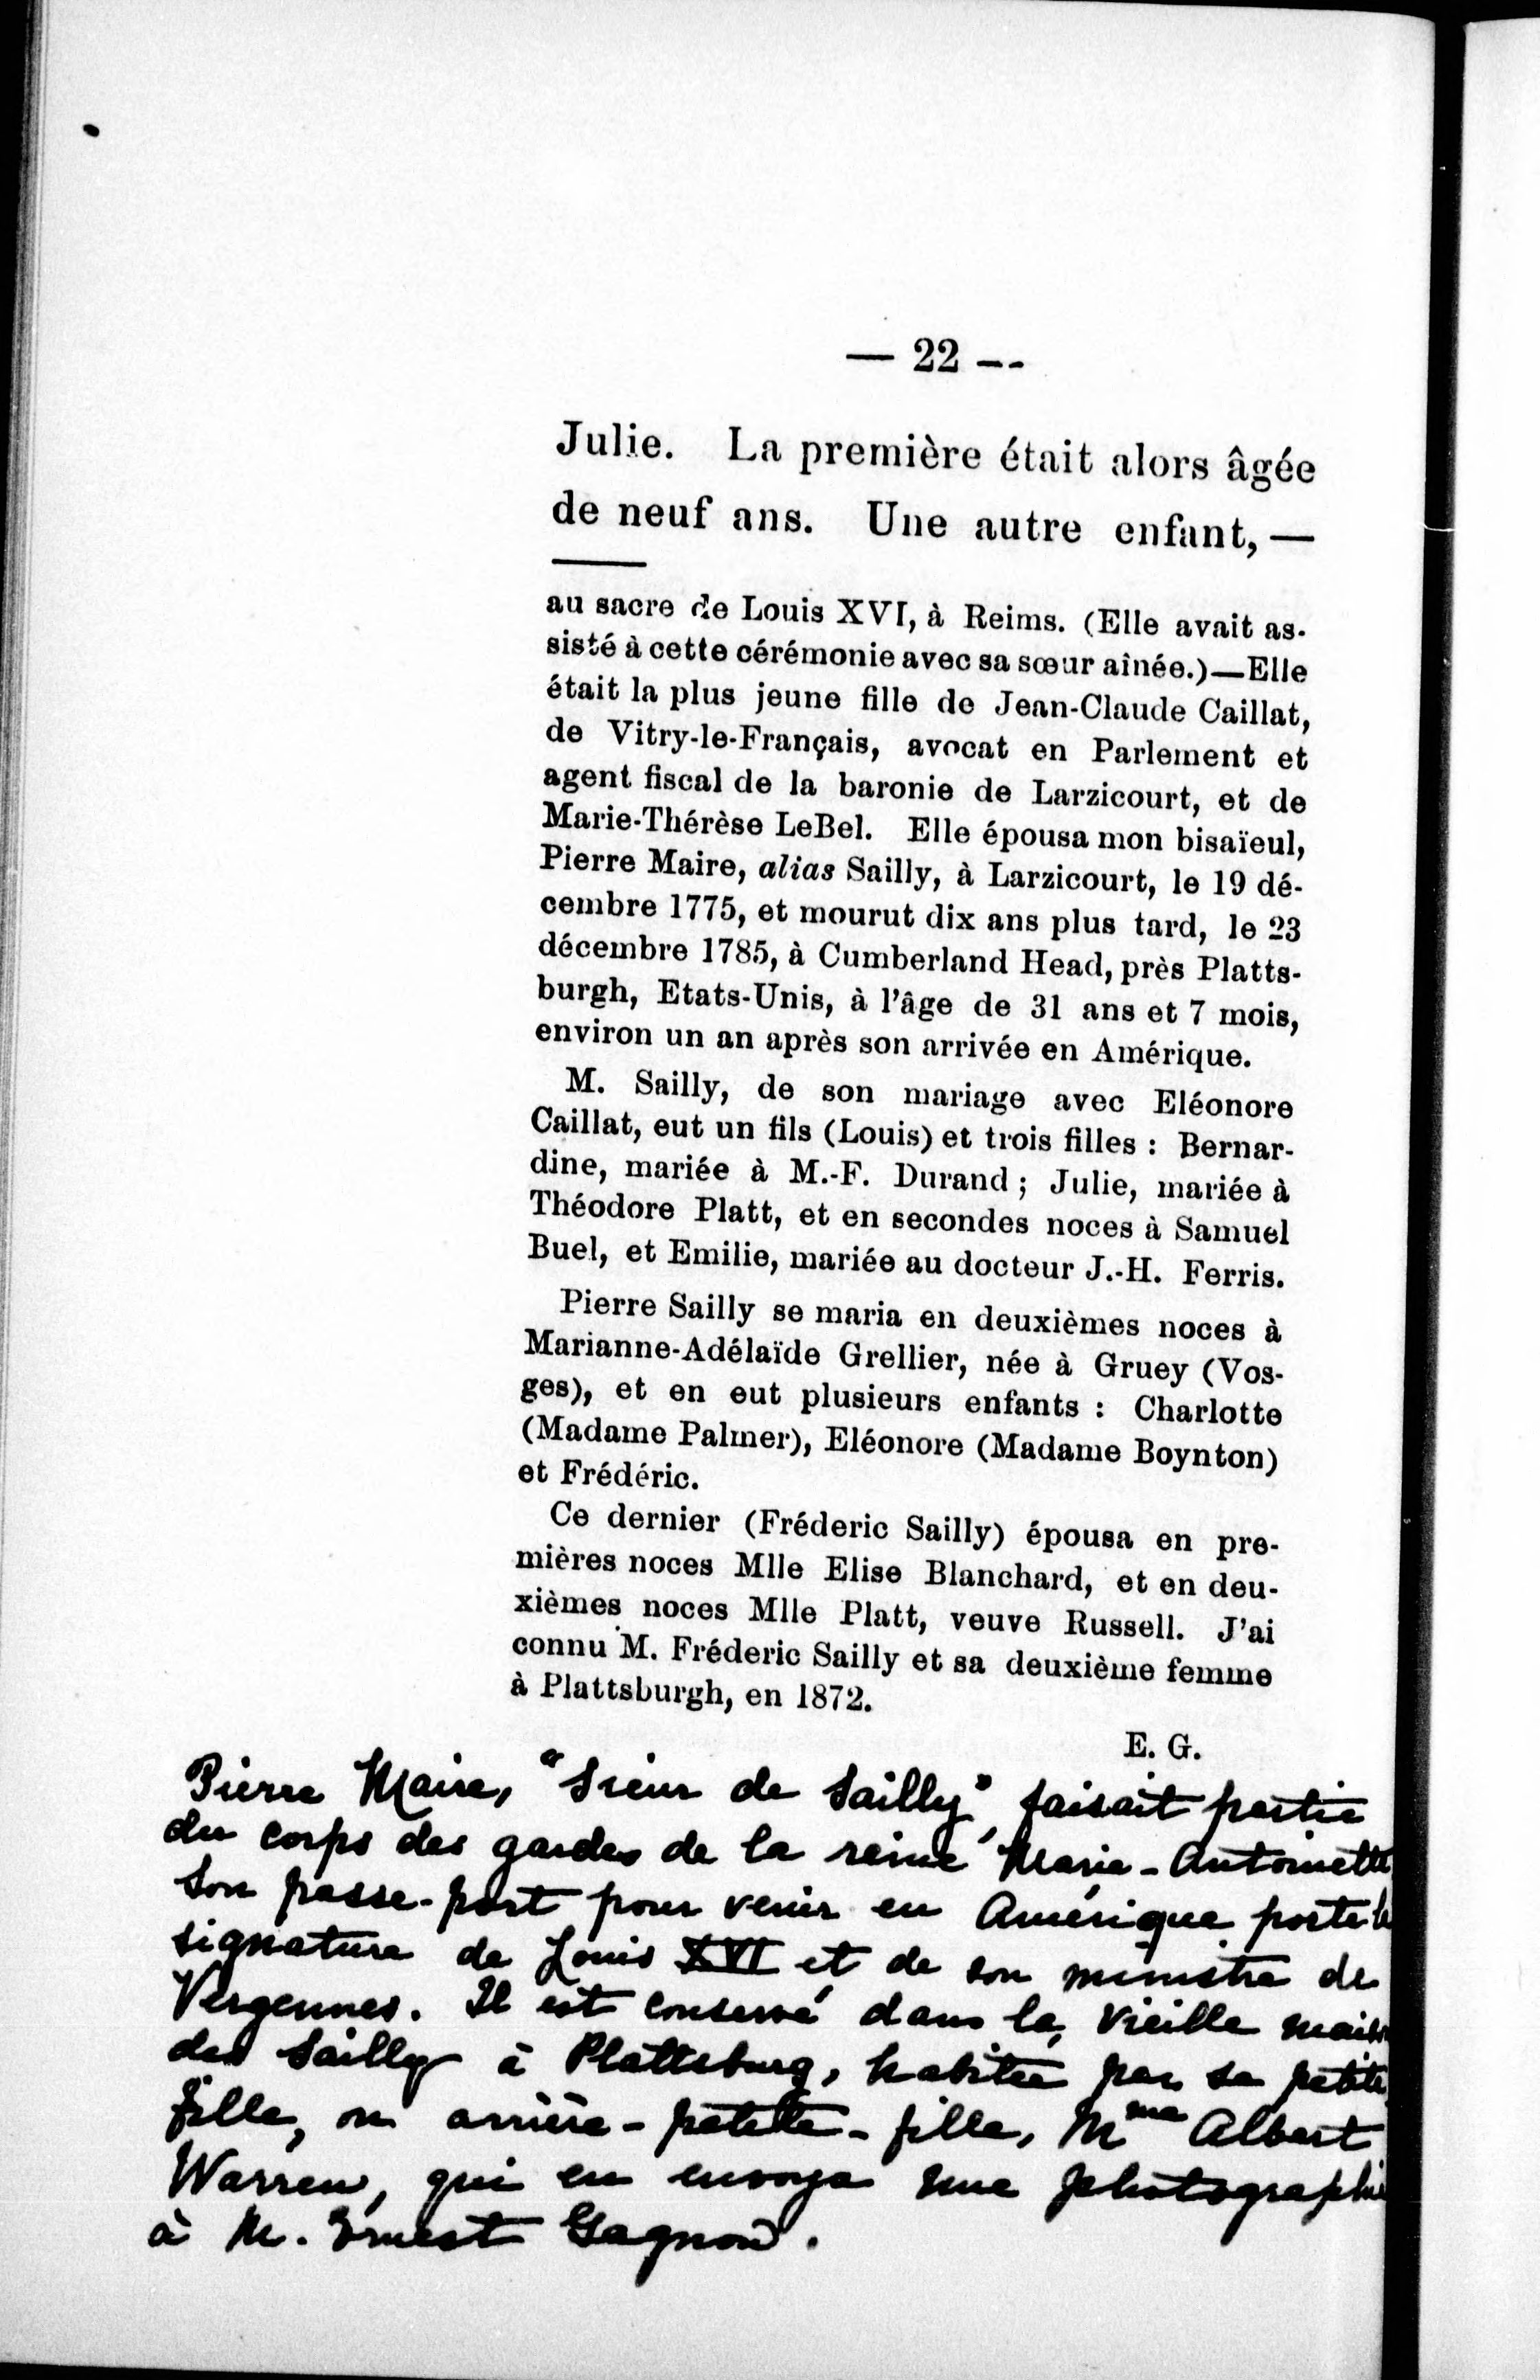 — 22 --
Julie. La première était alors âgée
de neuf ans. Une autre enfant, —
au sacre de Louis XVI, à Reims. (Elle avait as-
sisté à cette cérémonie avec sa sœur aînée.)—Elle
était la plus jeune fille de Jean-Claude Caillat,
de Vitry-le-Français, avocat en Parlement et
agent fiscal de la baronie de Larzicourt, et de
Marie-Thérèse LeBel. Elle épousa mon bisaïeul,
Pierre Maire, alias Sailly, à Larzicourt, le 19 dé-
cembre 1775, et mourut dix ans plus tard, le 23
décembre 1785, à Cumberland Head, près Platts-
burgh, Etats-Unis, à l'âge de 31 ans et 7 mois,
environ un an après son arrivée en Amérique.
M. Sailly, de son mariage avec Eléonore
Caillat, eut un fils (Louis) et trois filles : Bernar-
dine, mariée à M.-F. Durand ; Julie, mariée à
Théodore Platt, et en secondes noces à Samuel
Buel, et Emilie, mariée au docteur J.-H. Ferris.
Pierre Sailly se maria en deuxièmes noces à
Marianne-Adélaïde Grellier, née à Gruey (Vos-
ges), et en eut plusieurs enfants : Charlotte
(Madame Palmer), Eléonore (Madame Boynton)
et Frédéric.
Ce dernier (Fréderic Sailly) épousa en pre-
mières noces Mlle Elise Blanchard, et en deu-
xièmes noces Mlle Platt, veuve Russell. J'ai
connu M. Fréderic Sailly et sa deuxième femme
à Plattsburgh, en 1872.
E. G.
Pierre Maire, "Sieur de Sailly", faisait partie
du corps des gardes de la reine Marie-Antoinette
Son passe-port pour venir en Amérique porte la
signature de Louis XVI et de son ministre de
Vergennes. Il est conservé dans la vieille maison
des Sailly à Plattsburg, habitée par sa petite
fille, ou arrière-petite-fille, Mme Albert
Warren, qui en envoya une photographie
à M. Ernest Gagnon.